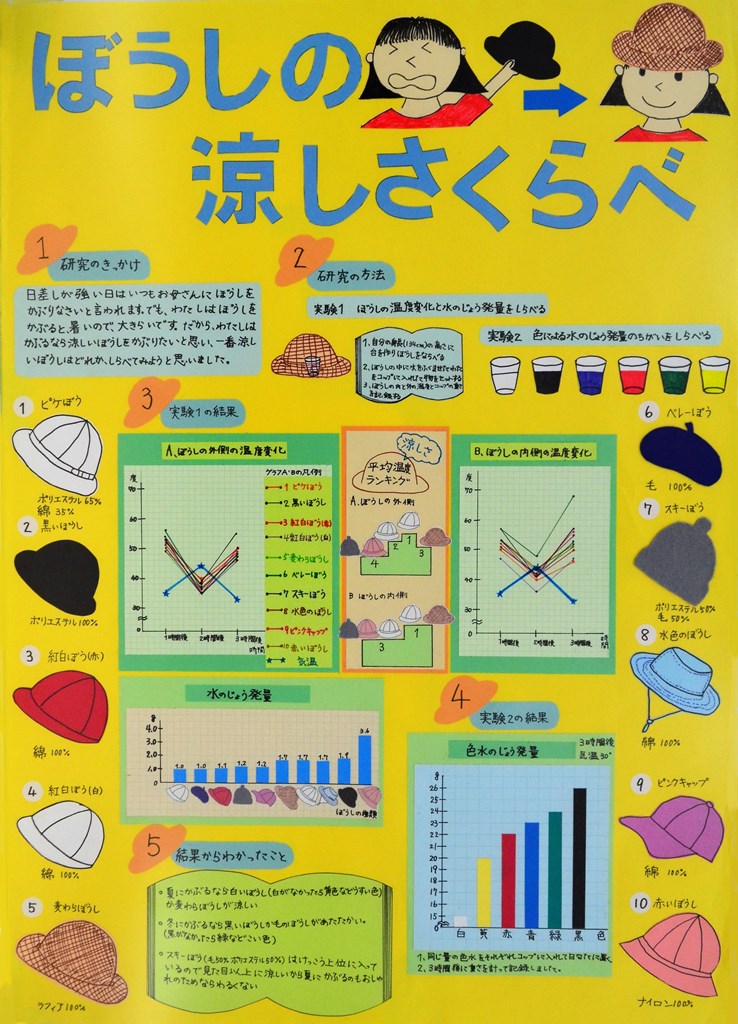 ぼうしの
涼しさくらべ
1 研究のきっかけ
日差しが強い日はいつもお母さんにぼうしを
かぶりなさいと言われます。でも、わたしはぼうしを
かぶると、暑いので、大きらいです。だから、わたしは
かぶるなら涼しいぼうしをかぶりたいと思い、一番涼し
いぼうしはどれか、しらべてみようと思いました。
2 研究の方法
実験1 ぼうしの温度変化と水のじょう発量をしらべる
1、自分の身長(134cm)の高さに
台を作りぼうしをならべる
2、ぼうしの中に水をふくませたわた
をコップに入れた
3、ぼうしの内と外の温度とコップの重
さを記録する
実験2 色による水のじょう発量のちがいをしらべる
3 実験1の結果
A、ぼうしの外側の温度変化
度
70
60
50
40
30
1時間後 2時間後 3時間後
時間
グラフA・Bの凡例
1 ピケぼう
2 黒いぼうし
3 紅白ぼう(赤)
4 紅白ぼう(白)
5 麦わらぼうし
6 ベレーぼう
7 スキーぼう
8 水色のぼうし
9 ピンクキャップ
10 赤いぼうし
気温
涼しさ
平均温度
ランキング
A、ぼうしの外側
2 1 3
4
B ぼうしの内側
1
3
B、ぼうしの内側の温度変化
度
70
60
50
40
30
1時間後 2時間後 3時間後
時間
水のじょう発量
g
4.0
3.0
2.0
1.0
0
1.0 1.0 1.1 1.2 1.2 1.7 1.7 1.7 1.9 3.6
ぼうしの種類
4 実験2の結果
色水のじょう発量
3時間後
気温30°
g
26
25
24
23
22
21
20
19
18
17
16
15
0
白 黄 赤 青 緑 黒 色
1、同じ量の色水をそれぞれコップに入れて日なたに置く
2、3時間後に重さを計って記録しました。
5 結果からわかったこと
・夏にかぶるなら白いぼうし(白がなかったら黄色などうすい色)
か麦わらぼうしが涼しい
・冬にかぶるなら黒いぼうしか毛のぼうしがあたたかい。
(黒がなかったら緑などこい色)
・スキーぼう(毛50% ポリエステル50%)はけっこう上位に入って
いるので見た目以上に涼しいから夏にかぶるのもおしゃ
れのためならわるくない
1 ピケぼう
ポリエステル65%
綿 35%
2 黒いぼうし
ポリエステル100%
3 紅白ぼう(赤)
綿 100%
4 紅白ぼう(白)
綿 100%
5 麦わらぼうし
ラフィア100%
6 ベレーぼう
毛 100%
7 スキーぼう
ポリエステル50%
毛 50%
8 水色のぼうし
綿 100%
9 ピンクキャップ
綿 100%
10 赤いぼうし
ナイロン100%